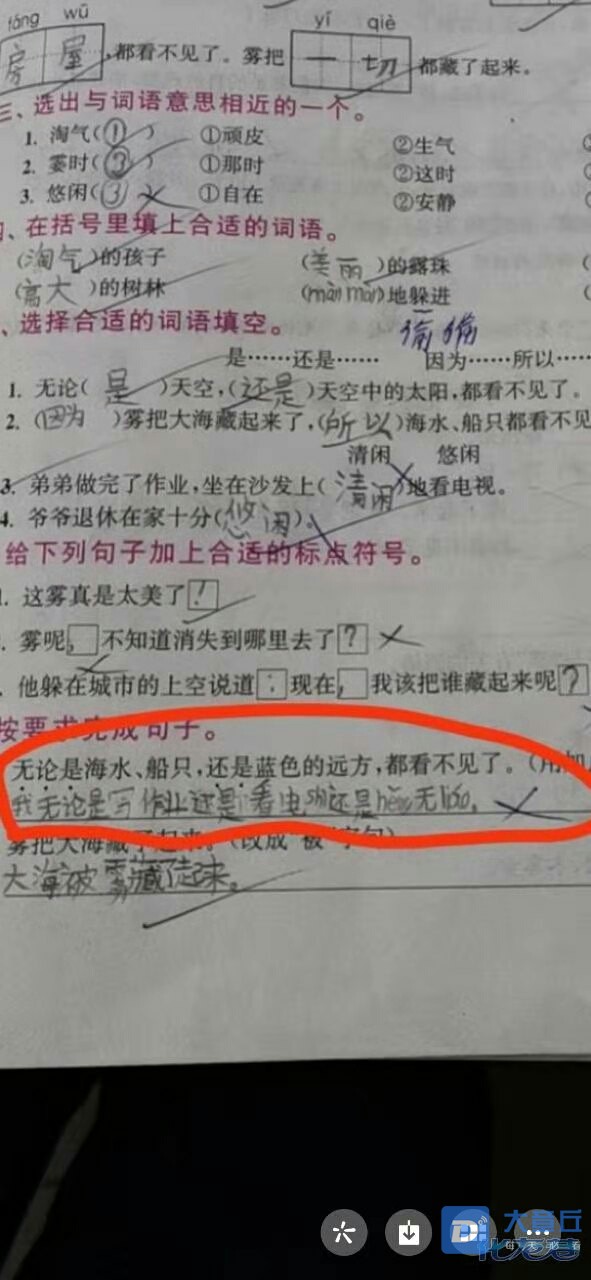 fáng wū yí qiè
房屋,都看不见了。雾把一切都藏了起来。
三、选出与词语意思相近的一个。
1. 淘气(①) ①顽皮 ②生气
2. 霎时(③) ①那时 ②这时
3. 悠闲(③) ①自在 ②安静
、在括号里填上合适的词语。
(淘气)的孩子 (美丽)的露珠 (
(高大)的树林 (màn màn)地躲进 (
偷偷
、选择合适的词语填空。
是……还是…… 因为……所以……
1. 无论(是)天空,(还是)天空中的太阳,都看不见了。
2. (因为)雾把大海藏起来了,(所以)海水、船只都看不见
清闲 悠闲
3. 弟弟做完了作业,坐在沙发上(清闲)地看电视。
4. 爷爷退休在家十分(悠闲)。
给下列句子加上合适的标点符号。
. 这雾真是太美了!
. 雾呢,不知道消失到哪里去了?
. 他躲在城市的上空说道:现在,我该把谁藏起来呢?
按要求完成句子。
无论是海水、船只,还是蓝色的远方,都看不见了。(用加
我无论是写作业还是看电shì还是hěn无liáo。
雾把大海藏了起来。(改成"被"字句)
大海被雾藏起来。
大鱼丘
每天必看